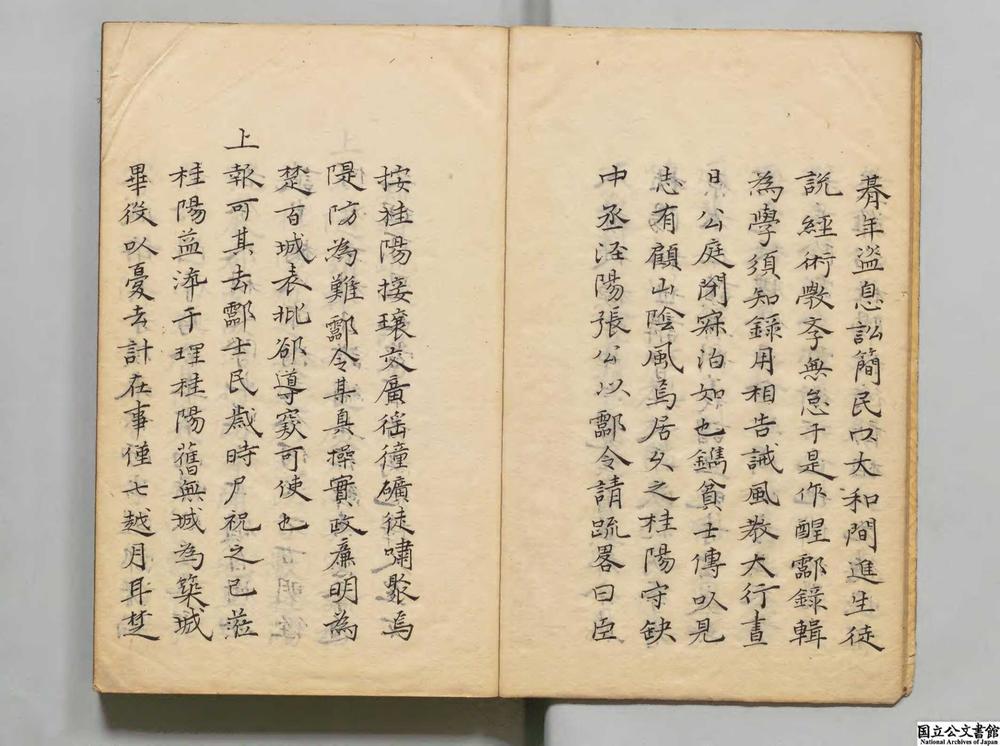 朞年盜息訟簡民以大和間進生徒
說經術斆孝無怠于是作醒酃錄輯
為學須知錄用相告誡風教大行晝
日公庭閉寂泊如也鐫貧士傳以見
志有顧山陰風焉居久之桂陽守缺
中丞涇陽張公以酃令請疏畧曰臣
按桂陽接壤交廣徭獞礦徒嘯聚焉
隄防為難酃令某真操實政廉明為
楚百城表批郤導窾可使也
上
報可其去酃士民歲時尸祝之已蒞
桂陽益濂于理桂陽舊無城為築城
畢役以憂去計在事僅七越月耳楚
国立公文書館
National Archives of Japan